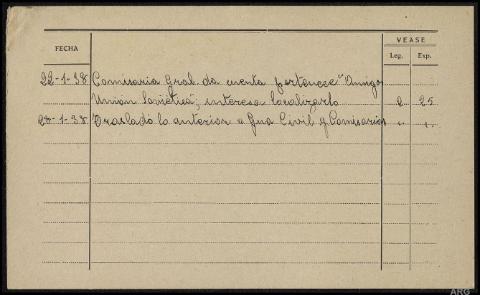 FECHA
VEASE
Leg. Exp.
22-1-38 Comisaria Gral. da cuenta pertenece "Amigos
Unión Soviética"; interesa localizarlo 2 25
28-1-38 Traslado lo anterior a Gna Civil y Comisarios " "
ARG